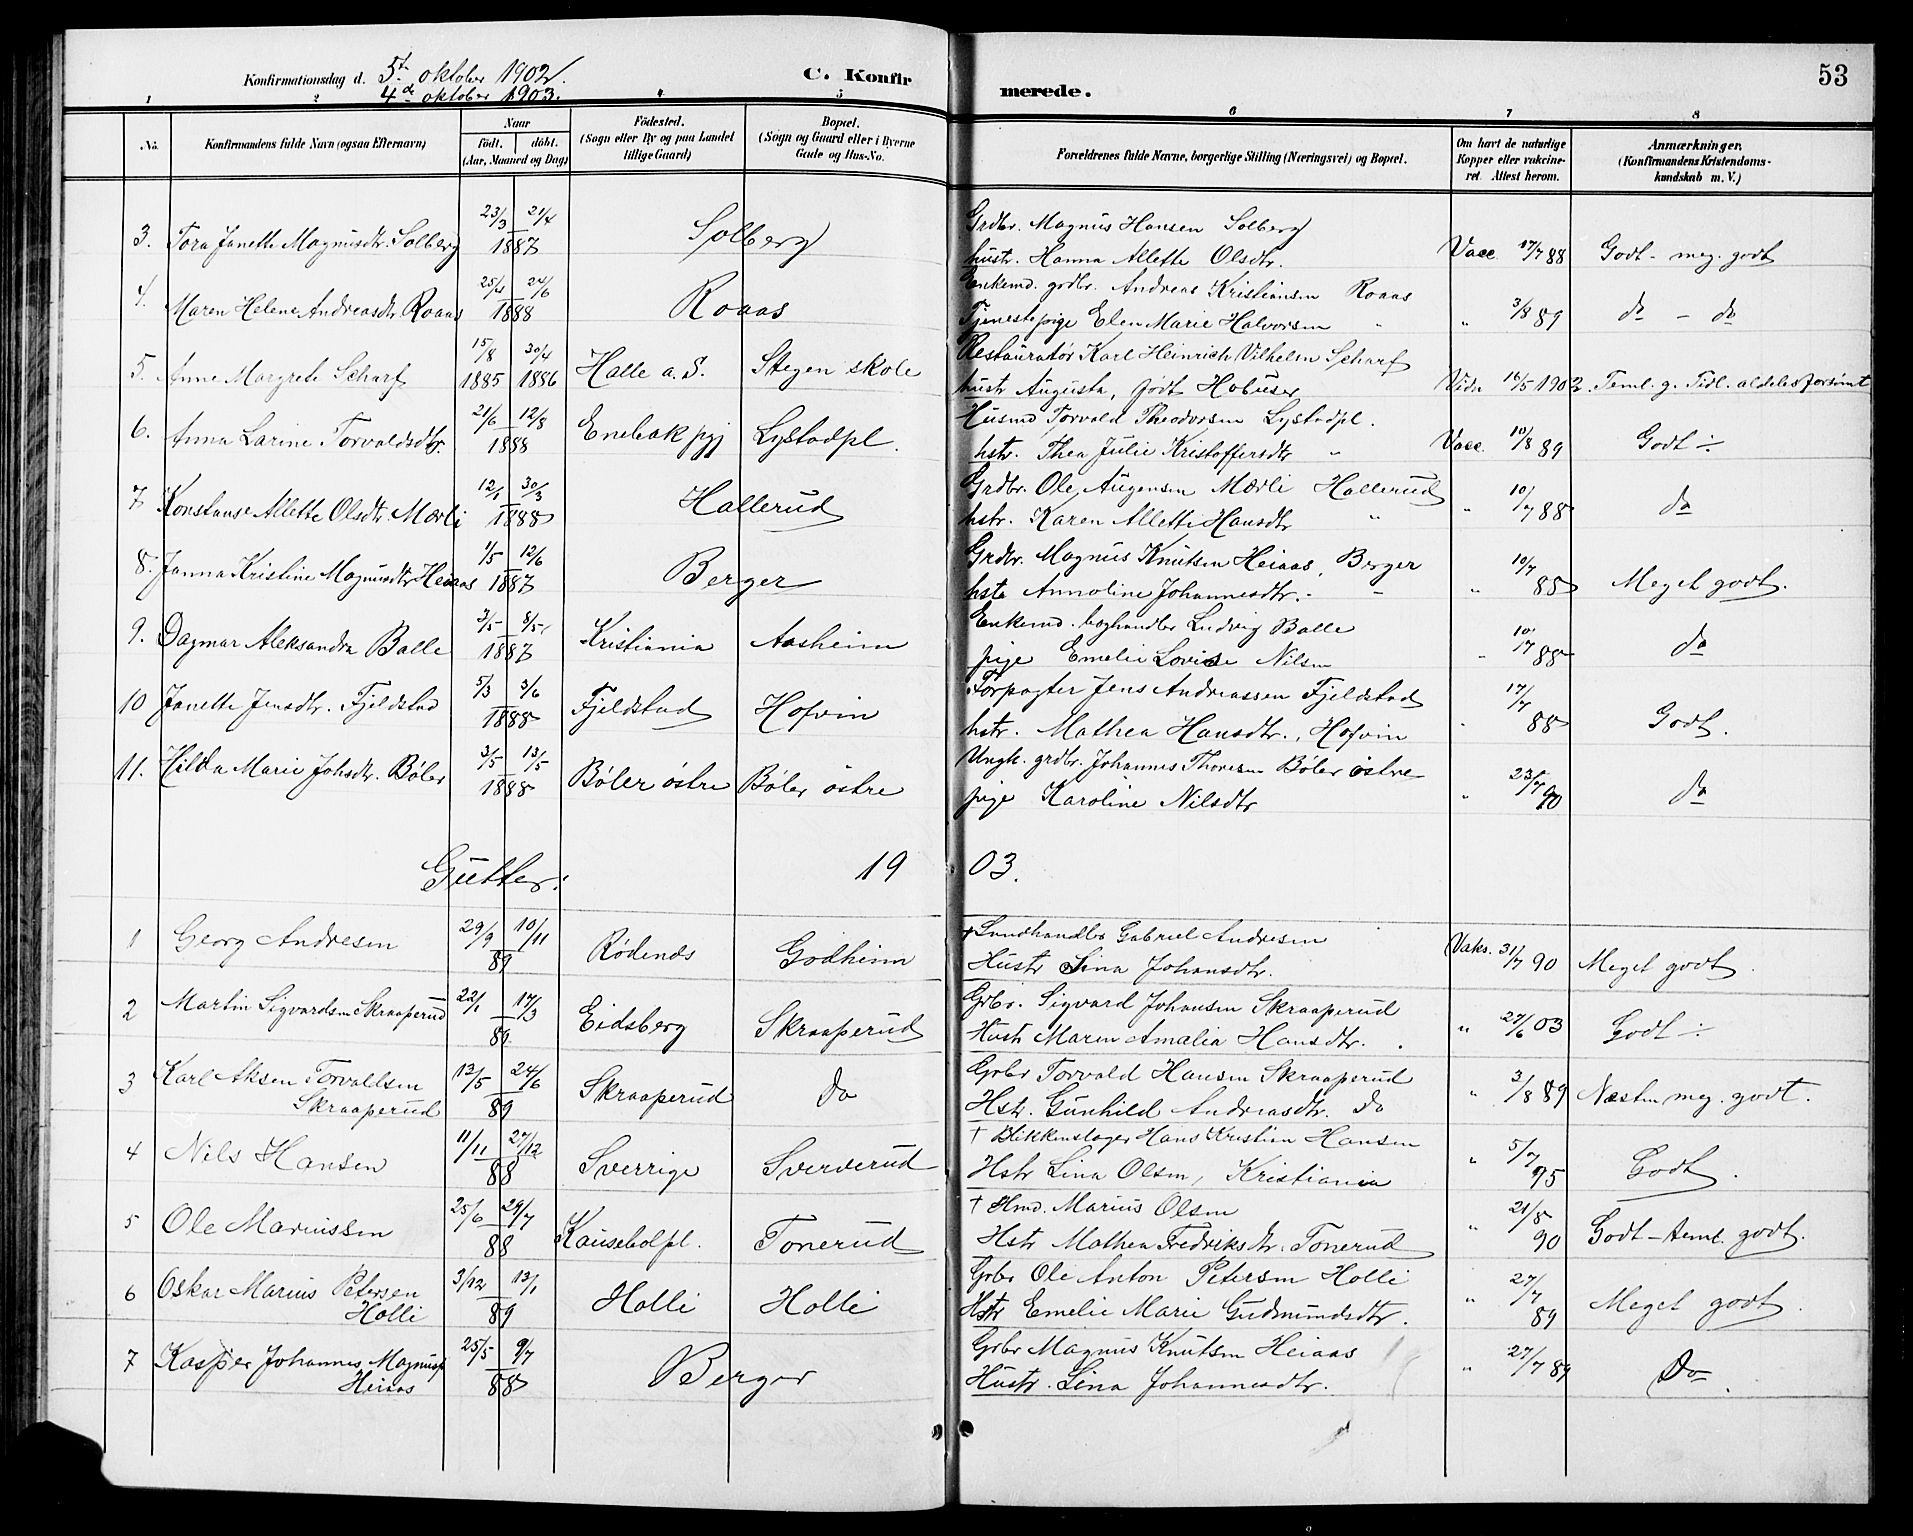 Konfirmationsdag d. 5te oktober 1902.
4de oktober 1903.
C. Konfirmerede.
53
1 2 4 5 6 7 8
No.
Konfirmandens fulde Navn (ogsaa Efternavn)
Naar
födt. döbt.
(Aar, Maaned og Dag)
Födested.
(Sogn eller By og paa Landet
tillige Gaard)
Bopæl.
(Sogn og Gaard eller i Byerne
Gade og Hus-No.
Forældrenes fulde Navne, borgerlige Stilling (Næringsvei) og Bopæl.
Om havt de naturlige
Kopper eller vakcine-
ret. Attest herom.
Anmærkninger.
(Konfirmandens Kristendoms-
kundskab m. V.)
3. Tora Janette Magnusdtr. Solberg 23/3 21/4 1887 Solberg
Grdbr. Magnus Hansen Solberg
hustr. Hanna Allette Olsdtr. Vacc. 17/7 88 Godt - meg. godt
4. Maren Helene Andreasdtr Roaas 25/4 24/6 1888 Roaas
Enkemd. grdbr. Andreas Kristiansen Roaas
Tjenestepige Elen Marie Halvorsen " " 3/8 89 do - do
5. Anne Margrete Scharf 15/8 1885 30/4 1886 Halle a. S. Stegen skole
Restauratør Karl Heinrich Vilhelm Scharf
hustr Augusta, født Hobuser Vidn 16/5 1902. Teml. g. Tidl. aldeles forsømt
6. Anna Larine Torvaldsdtr. 21/6 12/8 1888 Enebak pgj Lystadpl.
Husmd Torvald Theodorsen Lystadpl.
hstr. Thea Julie Kristoffersdtr " Vacc. 10/8 89 Godt ÷
7 Konstanse Allette Olsdtr. Mærli 12/1 30/3 1888 Hallerud
Grdbr. Ole Augensen Mærli Hallerud
hstr. Karen Allette Hansdtr " " 10/7 88 do
8. Janna Kristine Magnusdtr Heiaas 1/5 12/6 1887 Berger
Grdbr. Magnus Knutsen Heiaas, Berger
hstr Annoline Johannesdtr. - - " 10/7 88 Meget godt.
9. Dagmar Aleksandra Balle 3/5 8/5 1887 Kristiania Aasheim
Enkemd. boghandler Ludvig Balle
pige Emelie Lovise Nilsen " 10/7 88 do
10 Janette Jensdtr. Fjeldstad 5/3 3/6 1888 Fjeldstad Hofvin
Forpagter Jens Andreassen Fjeldstad
hstr. Mathea Hansdtr., Hofvin " 17/7 88 Godt.
11. Hilda Marie Johsdtr. Bøler 3/5 13/5 1888 Bøler østre Bøler østre
Ungk. grdbr. Johannes Thoresen Bøler østre
pige Karoline Nilsdtr " 23/7 90 do
Gutter: 1903.
1 Georg Andresen 29/9 10/11 89 Rødenæs Godheim
+ Landhandler Gabriel Andresen
Hustr Lina Johansdtr. Vaks. 31/7 90 Meget godt.
2 Martin Sigvardsen Skraaperud 22/1 17/3 89 Eidsberg Skraaperud
Grbr. Sigvard Johansen Skraaperud
Hustr Maren Amalia Hansdtr. " 27/6 03 Godt ÷
3 Karl Aksen Torvallsen
Skraaperud 13/5 24/6 89 Skraaperud Do
Grbr Torvald Hansen Skraaperud
Hstr. Gunhild Andreasdtr. Do " 3/8 89 Næsten meg. godt.
4 Nils Hansen 11/11 27/12 88 Sverrige Sververud
+ Blikkenslager Hans Kristian Hansen
Hstr Lina Olsen, Kristiania " 5/7 95 Godt.
5 Ole Mariussen 25/6 29/7 88 Kauseholpl. Tonerud
+ Hmd. Marius Olsen
Hstr Mathea Fredriksdtr. Tonerud " 21/8 90 Godt - teml. godt.
6 Oskar Marius Petersen
Holli 3/12 13/1 89 Holli Holli
Grbr Ole Anton Petersen Holli
Hstr Emelie Marie Gudmundsdtr. " 27/7 89 Meget godt.
7 Kasper Johannes Magnus
Heiaas 25/5 9/7 88 Berger
Grbr Magnus Knutsen Heiaas
Hustr. Lina Johannesdtr. " 27/7 89 Do